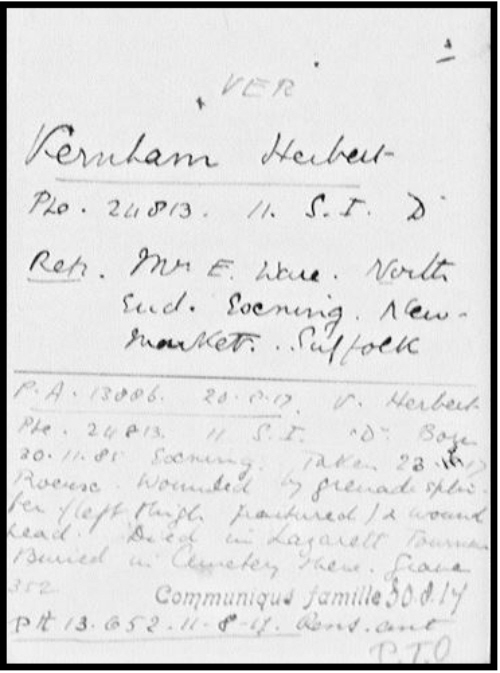 VER
Vernham Herbert
Pte. 24813. 11. S. I. D
Rep. Mrs E. Ware. North
End. Exening. New-
market. Suffolk
P.A. 13086. 20.8.17. V. Herbert
Pte. 24813. 11 S. I. "D". Born
30.11.85 Exening. Taken 23
Roeux. Wounded by grenade splin-
ter / left thigh fractured / & wound
head. Died in Lazarett Tournai
Buried in Cemetery there. Grave
352
Communiqué famille 30.8.17
PA 13.652. 11-8-17. Rens. ant
P.T.O